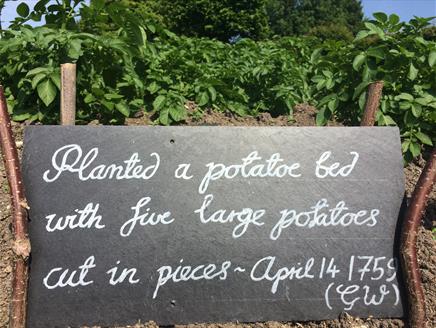 Planted a potatoe bed
with five large potatoes
cut in pieces ~ April 14 1759
(GW)